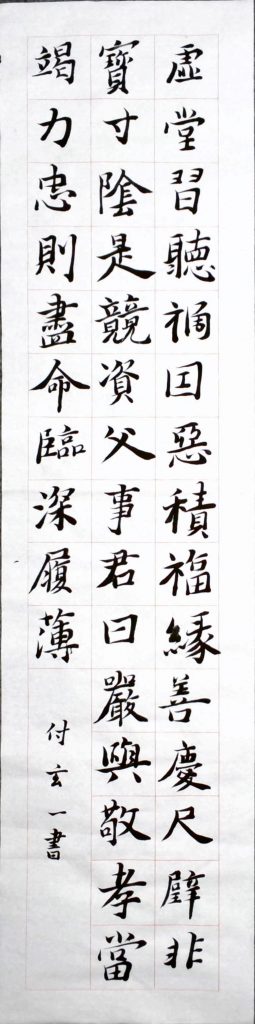 虛堂習聽禍因惡積福緣善慶尺璧非
寶寸陰是競資父事君曰嚴與敬孝當
竭力忠則盡命臨深履薄
付玄一書